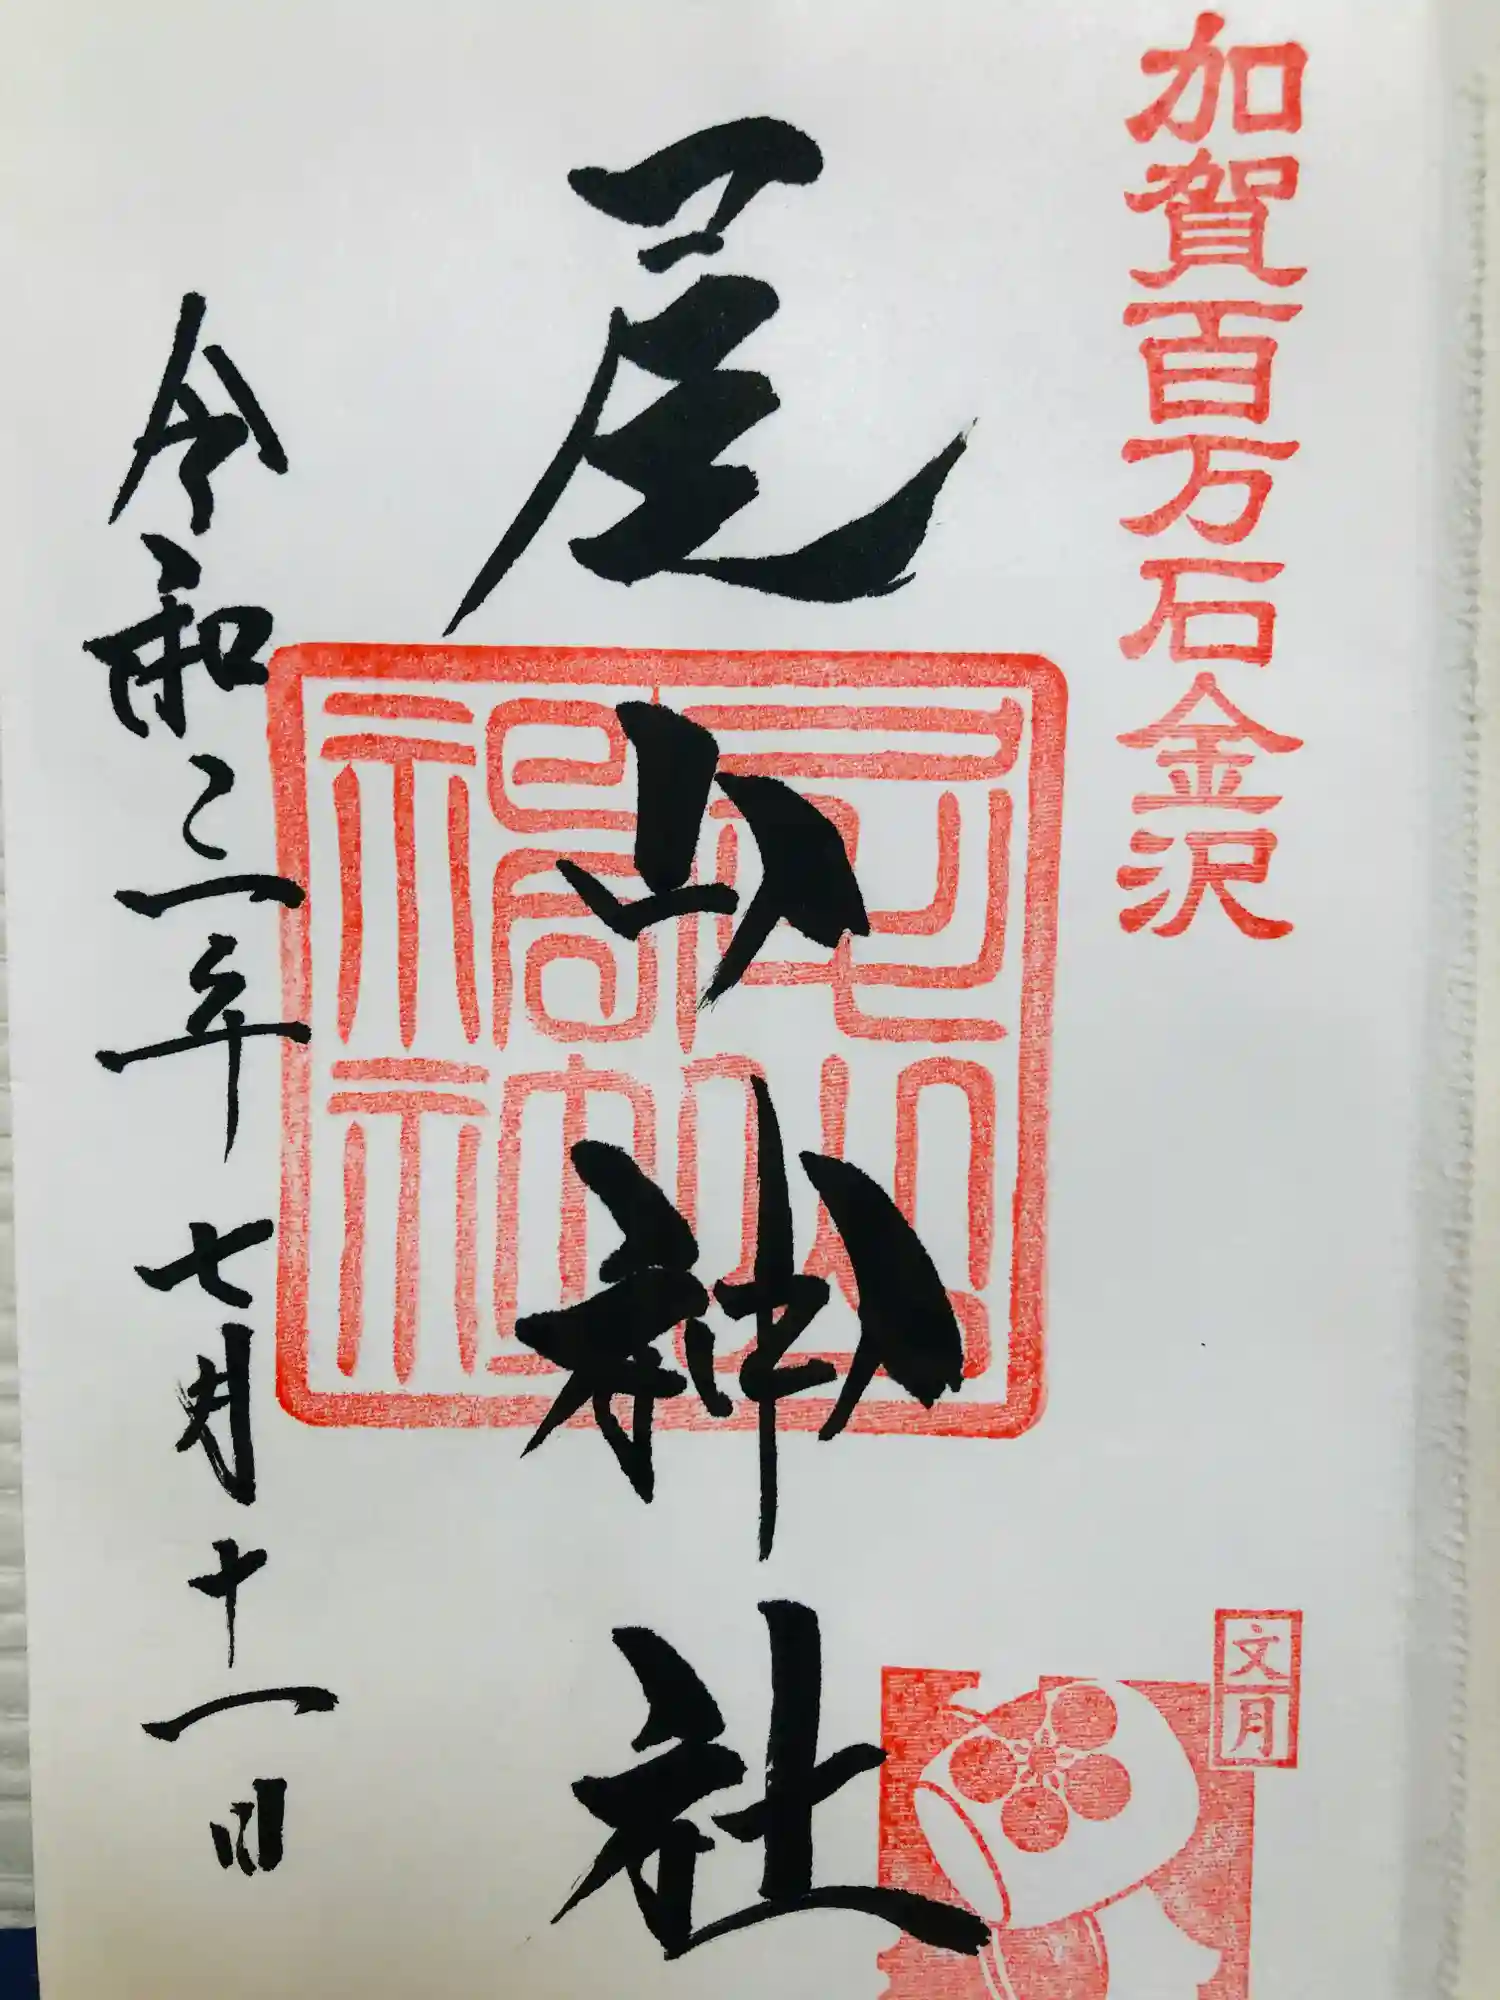 加賀百万石金沢
文月
尾山神社
令和三年七月十一日